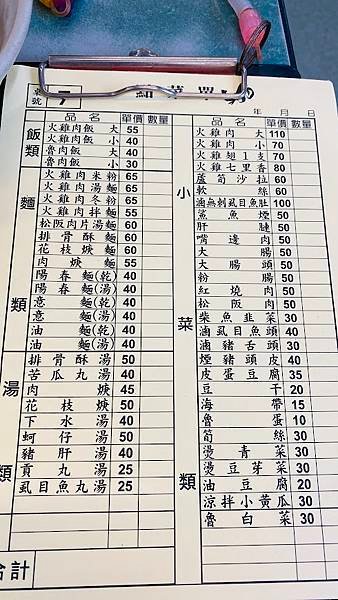 號 7 菜單
年 月 日
品名 單價 數量
飯類
火雞肉飯 大 55
火雞肉飯 小 40
魯肉飯 大 40
魯肉飯 小 30
麵類
火雞肉米粉 65
火雞肉湯麵 65
火雞肉冬粉 65
火雞肉拌麵 55
松阪肉片湯麵 60
排骨酥麵 60
花枝焿麵 60
肉焿麵 55
陽春麵(乾) 40
陽春麵(湯) 40
意麵(乾) 40
意麵(湯) 40
油麵(乾) 40
油麵(湯) 40
湯類
排骨酥湯 50
苦瓜丸湯 40
肉焿 45
花枝焿 50
下水湯 40
蚵仔湯 50
豬肝湯 40
貢丸湯 25
虱目魚丸湯 25
合計
品名 單價 數量
小菜類
火雞肉 大 110
火雞肉 小 70
火雞翅1支 70
火雞七里香 80
蘆筍沙拉 60
軟絲 60
滷無刺虱目魚肚 100
鯊魚煙 50
肝腱 50
嘴邊肉 50
大腸 50
大腸頭 50
粉腸 50
紅燒肉 50
松阪肉 50
柴魚韭菜 30
滷虱目魚頭 40
滷豬舌頭 30
煙豬頭皮 40
皮蛋豆腐 35
豆干 20
海帶 15
魯蛋 10
筍絲 30
燙青菜 30
燙豆芽菜 30
油豆腐 20
涼拌小黃瓜 30
魯白菜 30